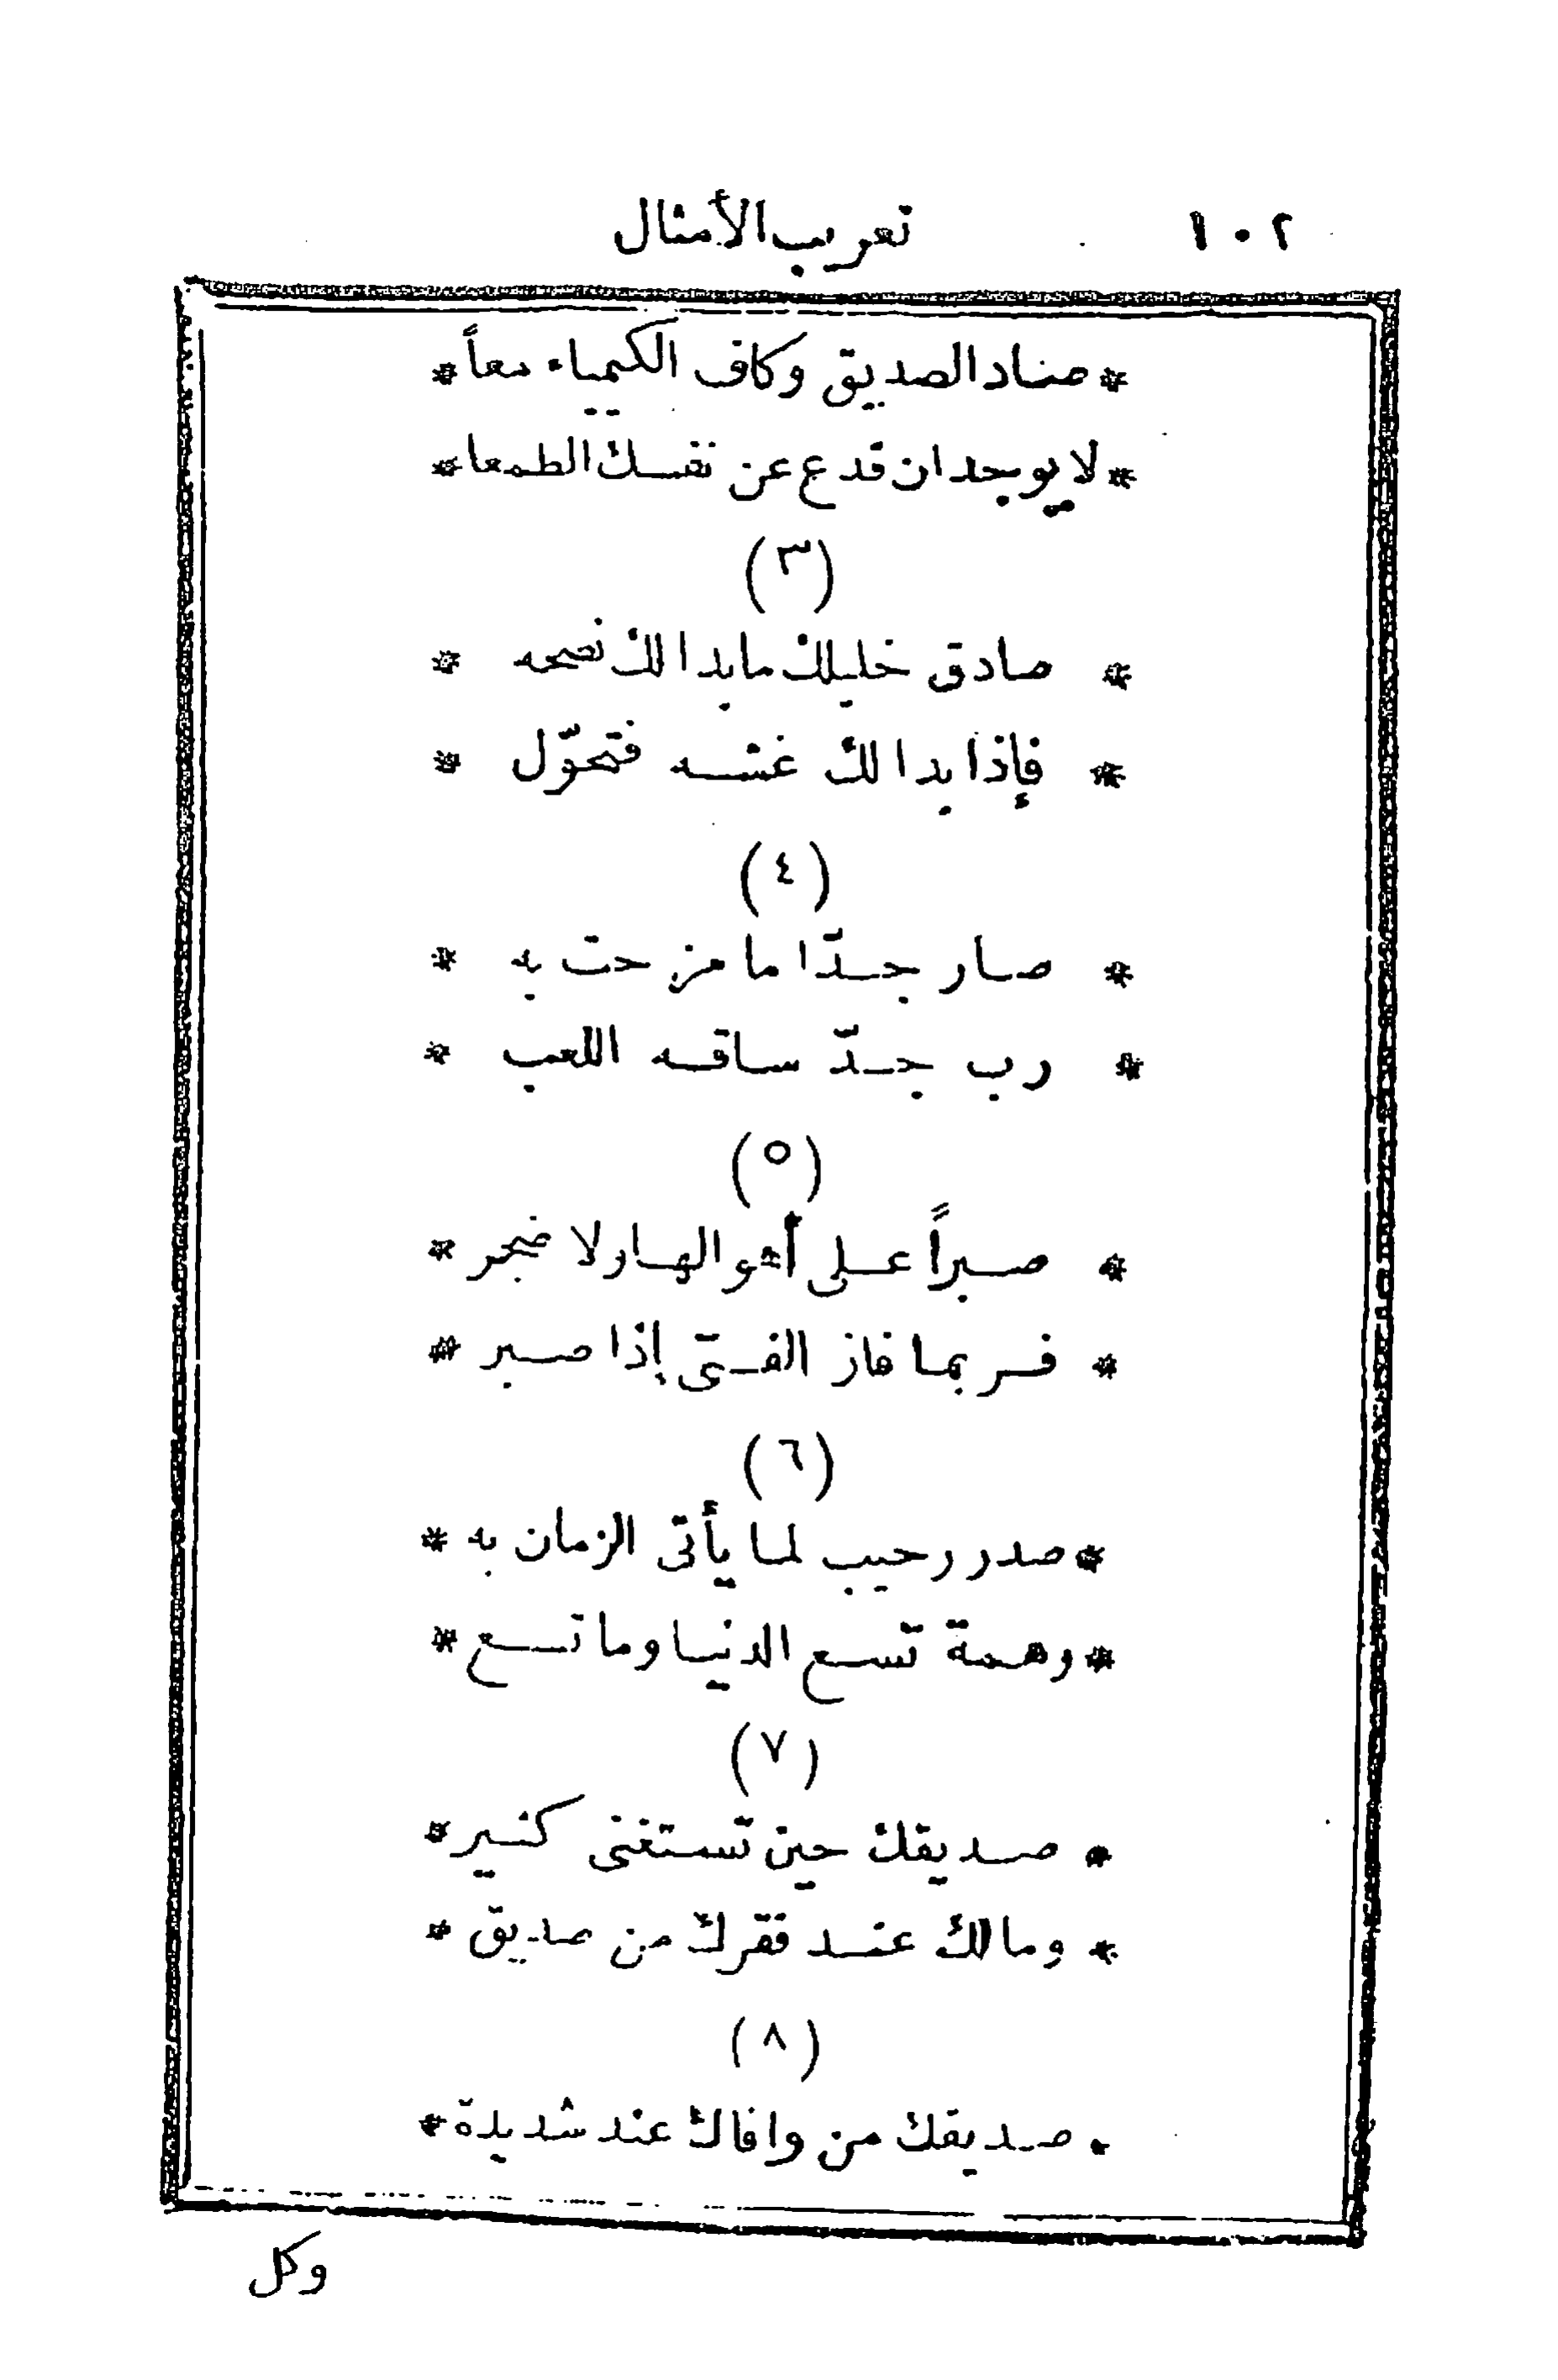 ١٠٢ تعريب الأمثال
* صاد الصديق وكاف الكيمياء معاً *
* لا يوجدان فدع عن نفسك الطمعا *
(٣)
* صادق خليلك ما بدا لك نصحه *
* فإذا بدا لك غشه فتحوّل *
(٤)
* صار جدّا ما مزحت به *
* رب جدّ ساقه اللعب *
(٥)
* صبراً على أهوالها ولا ضجر *
* فربما فاز الفتى إذا صبر *
(٦)
* صدر رحيب لما يأتى الزمان به *
* وهمة تسع الدنيا وما تسع *
(٧)
* صديقك حين تستغنى كثير *
* ومالك عند فقرك من صديق *
(٨)
* صديقك من وافاك عند شديدة *
وكل